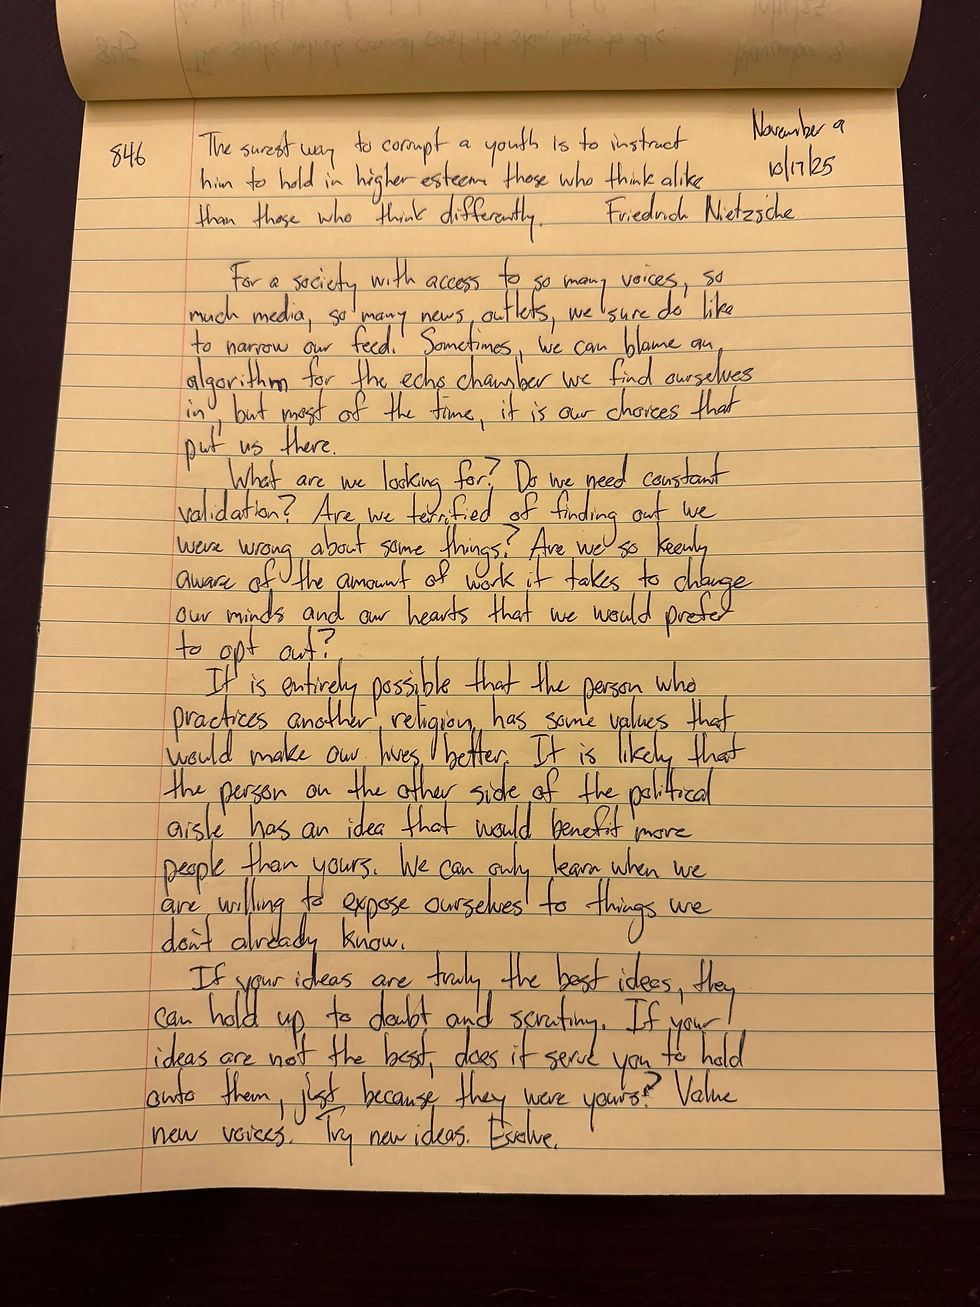 846
November 9
10/17/25
The surest way to corrupt a youth is to instruct
him to hold in higher esteem those who think alike
than those who think differently. Friedrich Nietzsche
For a society with access to so many voices, so
much media, so many news outlets, we sure do like
to narrow our feed. Sometimes, we can blame an
algorithm for the echo chamber we find ourselves
in, but most of the time, it is our choices that
put us there.
What are we looking for? Do we need constant
validation? Are we terrified of finding out we
were wrong about some things? Are we so keenly
aware of the amount of work it takes to change
our minds and our hearts that we would prefer
to opt out?
It is entirely possible that the person who
practices another religion has some values that
would make our lives better. It is likely that
the person on the other side of the political
aisle has an idea that would benefit more
people than yours. We can only learn when we
are willing to expose ourselves to things we
don't already know.
If your ideas are truly the best ideas, they
can hold up to doubt and scrutiny. If your
ideas are not the best, does it serve you to hold
onto them, just because they were yours? Value
new voices. Try new ideas. Evolve.